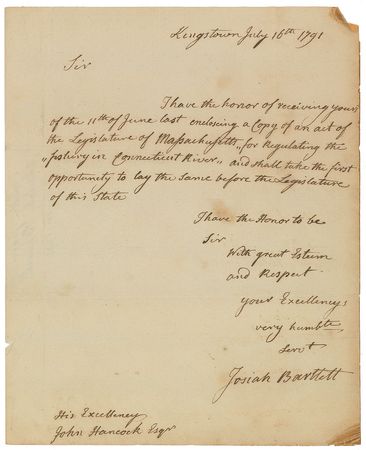 Kingstown July 16th 1791
Sir
I have the honor of receiving yours
of the 11th of June last enclosing a Copy of an act of
the Legislature of Massachusetts, „for Regulating the
„fishery in Connecticut River„ and shall take the first
opportunity to lay the same before the Legislature
of this State
I have the Honor to be
Sir
With great Esteem
and Respect
your Excellencys
very humble
Servt
Josiah Bartlett
His Excellency
John Hancock Esqr